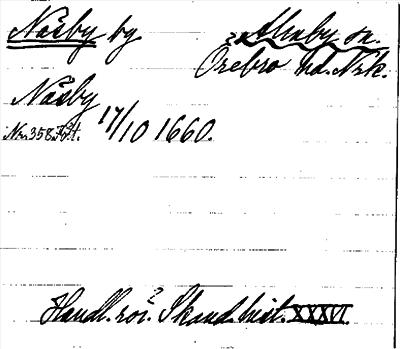 Näsby by Almby sn.
Örebro hd. Nrk.
Näsby
Nr. 358. 17/10 1660.
Handl. rör. Skand. hist. XXXVI.